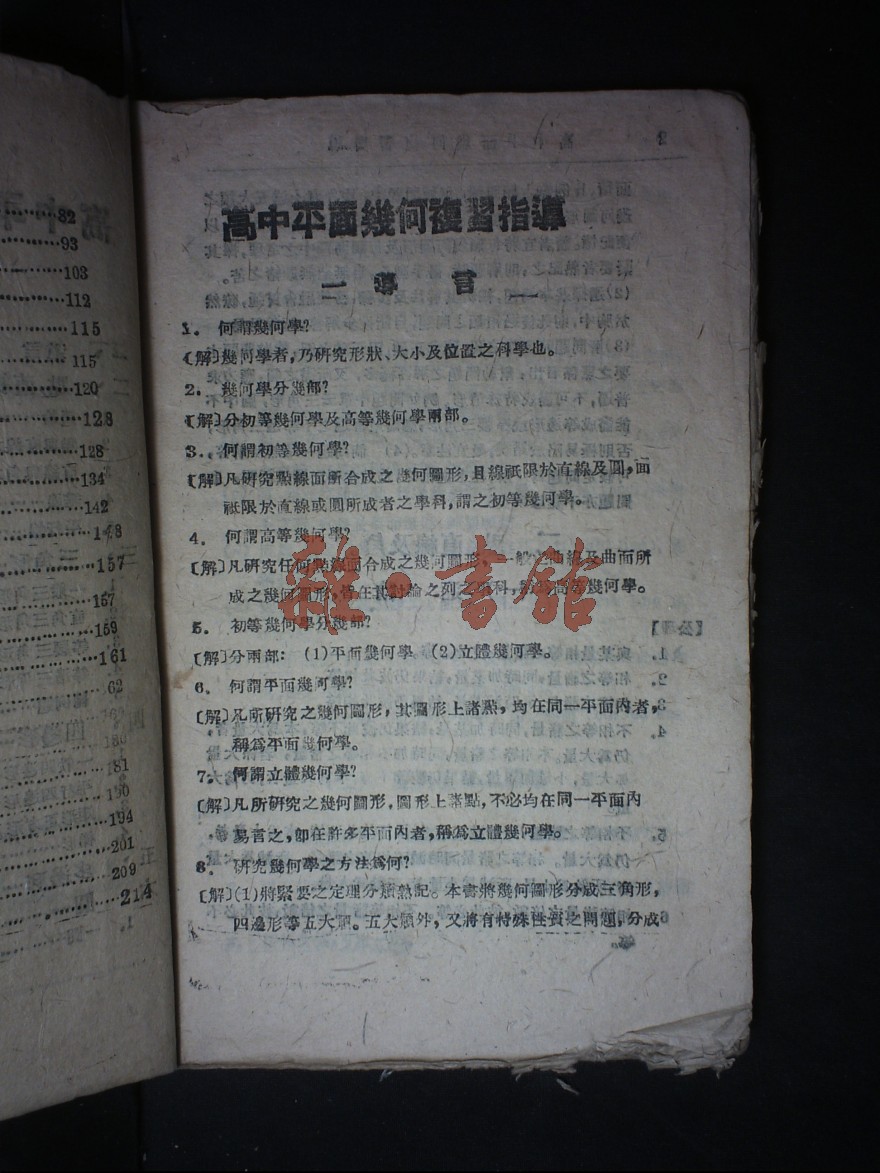 82
93
103
112
115
115
120
128
128
134
142
157
157
159
161
62
180
181
190
194
201
209
214
高中平面幾何複習指導
一 導言
1. 何謂幾何學?
〔解〕幾何學者,乃研究形狀、大小及位置之科學也。
2. 幾何學分幾部?
〔解〕分初等幾何學及高等幾何學兩部。
3. 何謂初等幾何學?
〔解〕凡研究點線面所合成之幾何圖形,且線祇限於直線及圓,面
祇限於直線或圓所成者之學科,謂之初等幾何學。
4. 何謂高等幾何學?
〔解〕凡研究任何點線面合成之幾何圖形,一般之曲線及曲面所
成之幾何圖形,皆在其討論之列之學科,謂之高等幾何學。
5. 初等幾何學分幾部?
〔解〕分兩部: (1)平面幾何學 (2)立體幾何學。
6. 何謂平面幾何學?
〔解〕凡所研究之幾何圖形,其圖形上諸點,均在同一平面內者,
稱爲平面幾何學。
7. 何謂立體幾何學?
〔解〕凡所研究之幾何圖形,圖形上諸點,不必均在同一平面內
易言之,卽在許多平面內者,稱爲立體幾何學。
8. 研究幾何學之方法爲何?
〔解〕(1)將緊要之定理分類熟記。本書將幾何圖形分成三角形,
四邊形等五大類。五大類外,又將有特殊性質之問題,分成
雜·書館